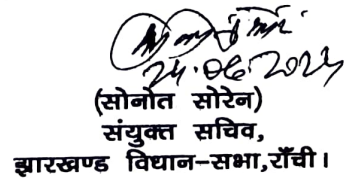 24.06.2024
(सोनोत सोरेन)
संयुक्त सचिव,
झारखण्ड विधान-सभा,राँची।